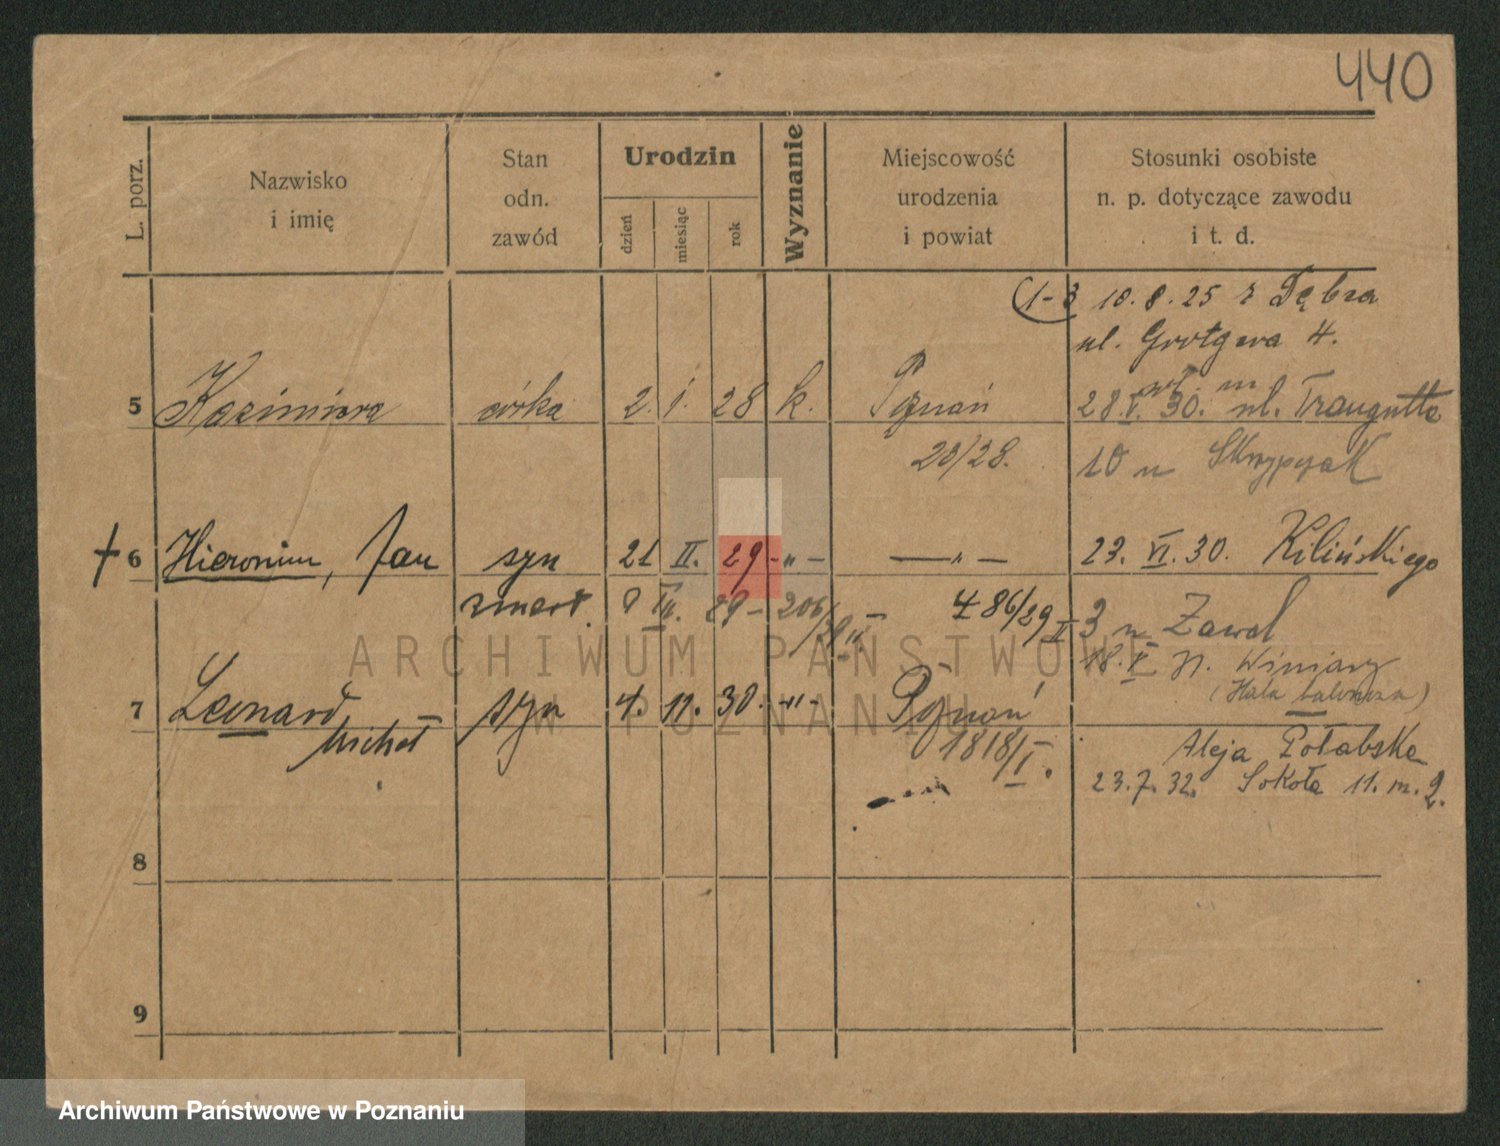 440
L. porz.
Nazwisko
i imię
Stan
odn.
zawód
Urodzin
dzień
miesiąc
rok
Wyznanie
Miejscowość
urodzenia
i powiat
Stosunki osobiste
n. p. dotyczące zawodu
i t. d.
(1-3 10.8.25 z Dębca
ul. Grotgera 4.
5 Kazimiera córka 2. 1. 28 k. Poznań 28.V.30. ul. Traugutta
20/28. 10 u Skrzypczak
+ 6 Hieronim, Jan syn 21 II. 29 -„- —„— 23. VI. 30. Kilińskiego
zmarł. 29 - 206/29 II. 486/29 II 3 u Zawal
18. V. Winiary
7 Leonard syn 4. 11. 30. -„- Poznań
Michał 1818/I. Aleja Połabska
23.7.32. Sokoła 11. m. 2.
8
9
ARCHIWUM PAŃSTWOWE
W POZNANIU
Archiwum Państwowe w Poznaniu